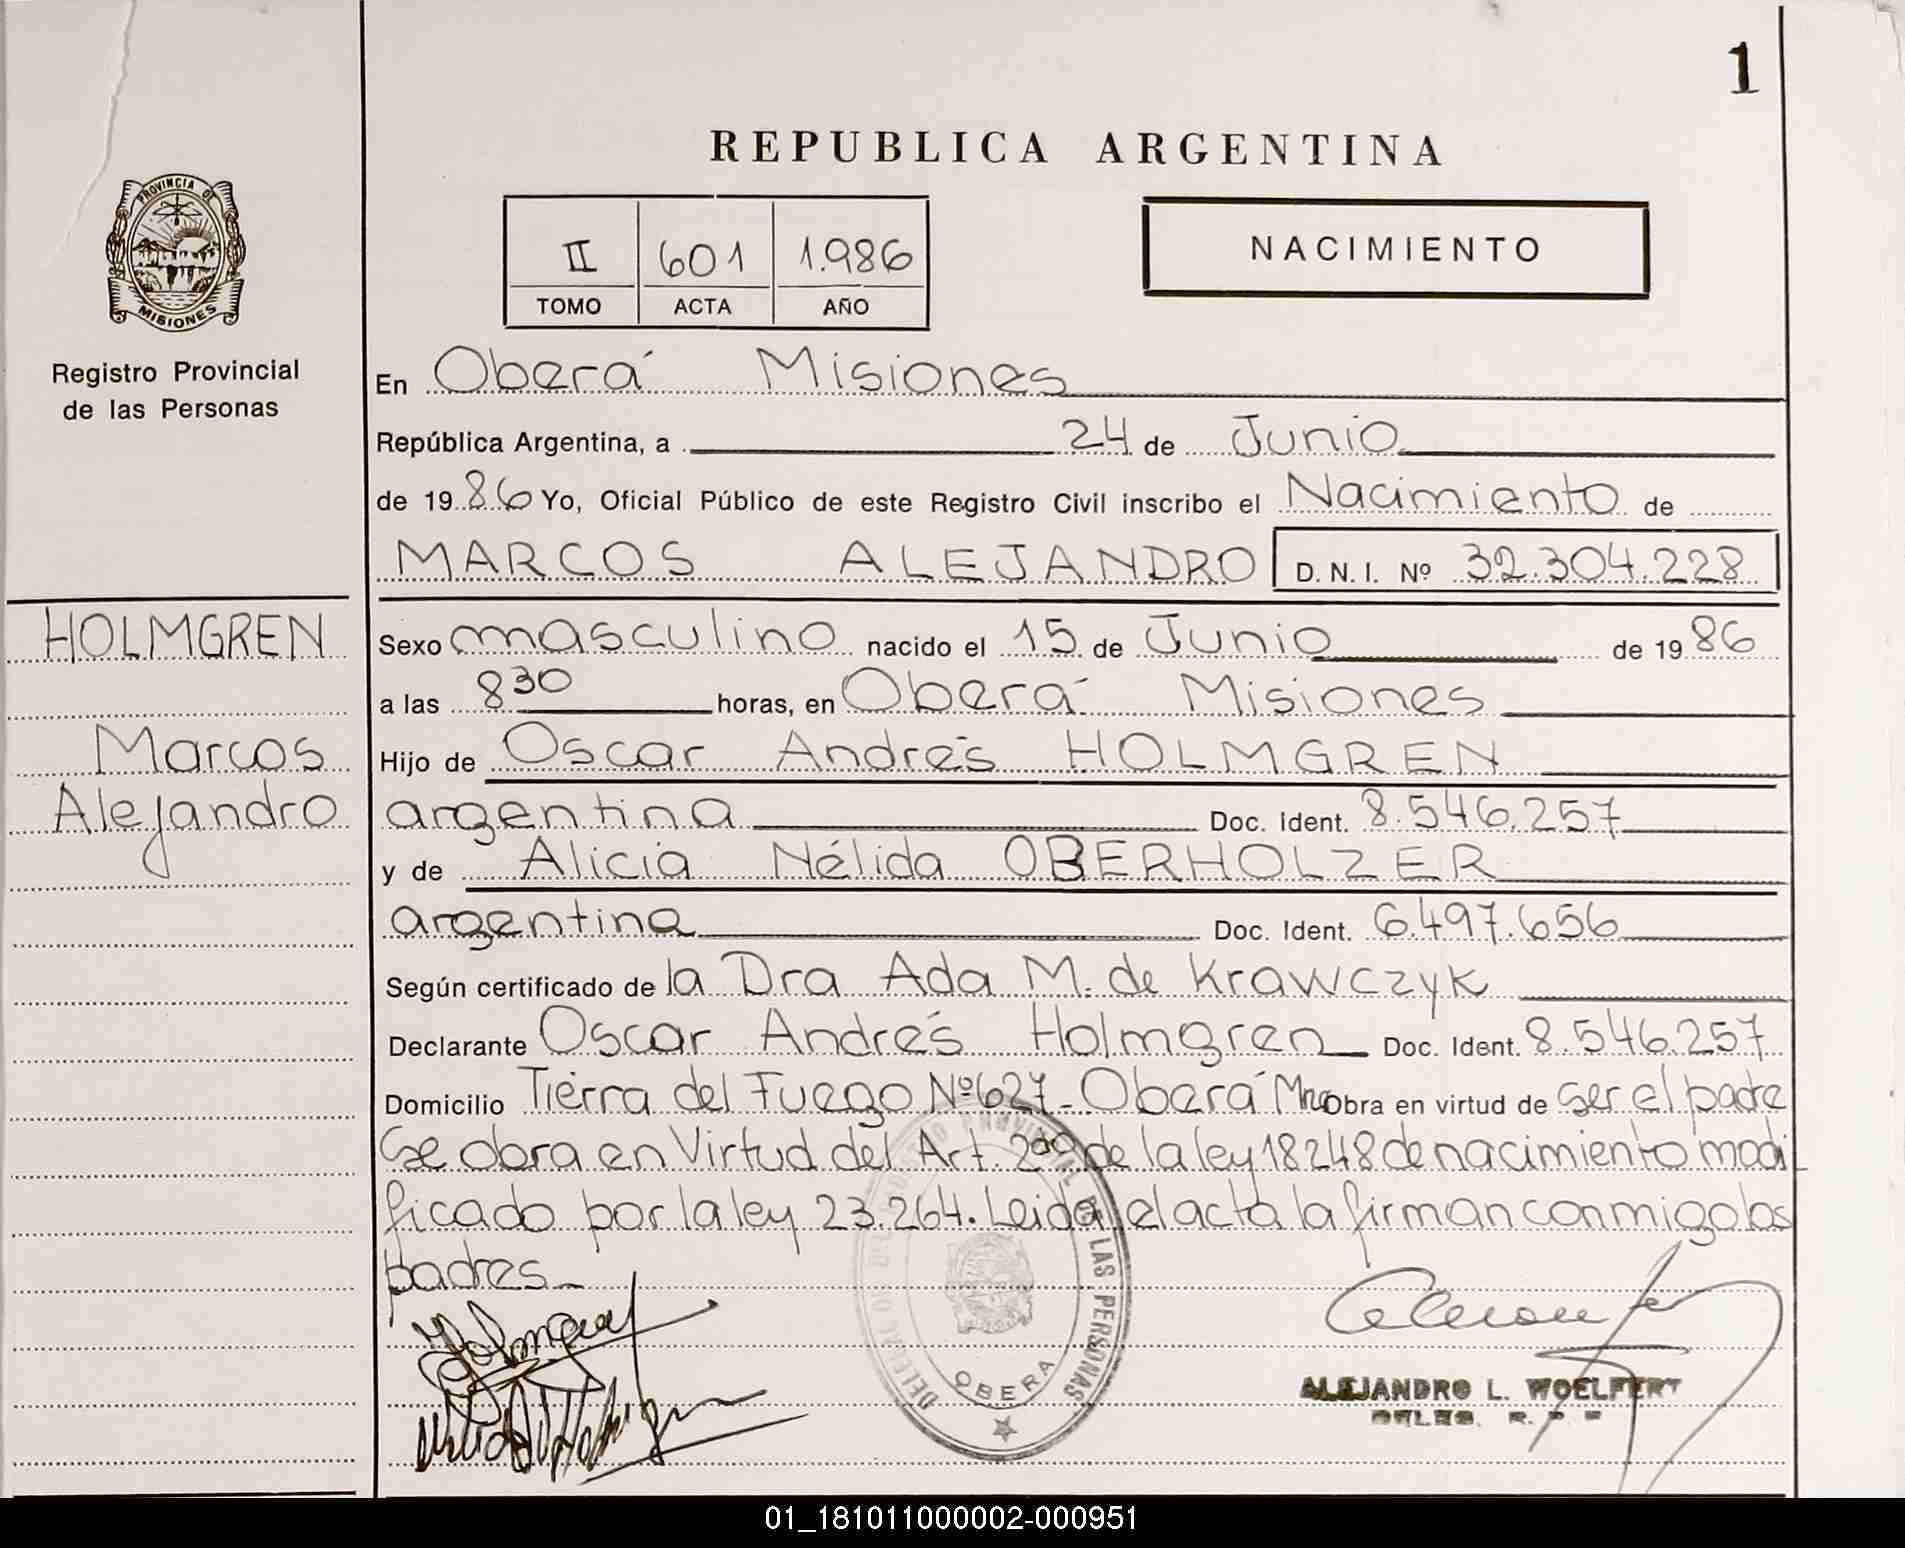 1
REPUBLICA ARGENTINA
PROVINCIA DE
MISIONES
Registro Provincial
de las Personas
II 601 1.986
TOMO ACTA AÑO
NACIMIENTO
En Oberá Misiones
República Argentina, a 24 de Junio
de 1986 Yo, Oficial Público de este Registro Civil inscribo el Nacimiento de
MARCOS ALEJANDRO D. N. I. Nº 32.304.228
HOLMGREN
Marcos
Alejandro
Sexo masculino nacido el 15 de Junio de 1986
a las 8 30 horas, en Oberá Misiones
Hijo de Oscar Andrés HOLMGREN
argentina Doc. Ident. 8.546.257
y de Alicia Nélida OBERHOLZER
argentina Doc. Ident. 6.497.656
Según certificado de la Dra Ada M. de Krawczyk
Declarante Oscar Andrés Holmgren Doc. Ident. 8.546.257
Domicilio Tierra del Fuego Nº 627 - Oberá Mnes Obra en virtud de ser el padre
Se obra en Virtud del Art. 2do de la ley 18248 de nacimiento modi
ficado por la ley 23.264. Leida el acta la firman conmigo los
padres
PROVINCIAL DE LAS PERSONAS
OBERA
ALEJANDRO L. WOELFERT
01_181011000002-000951